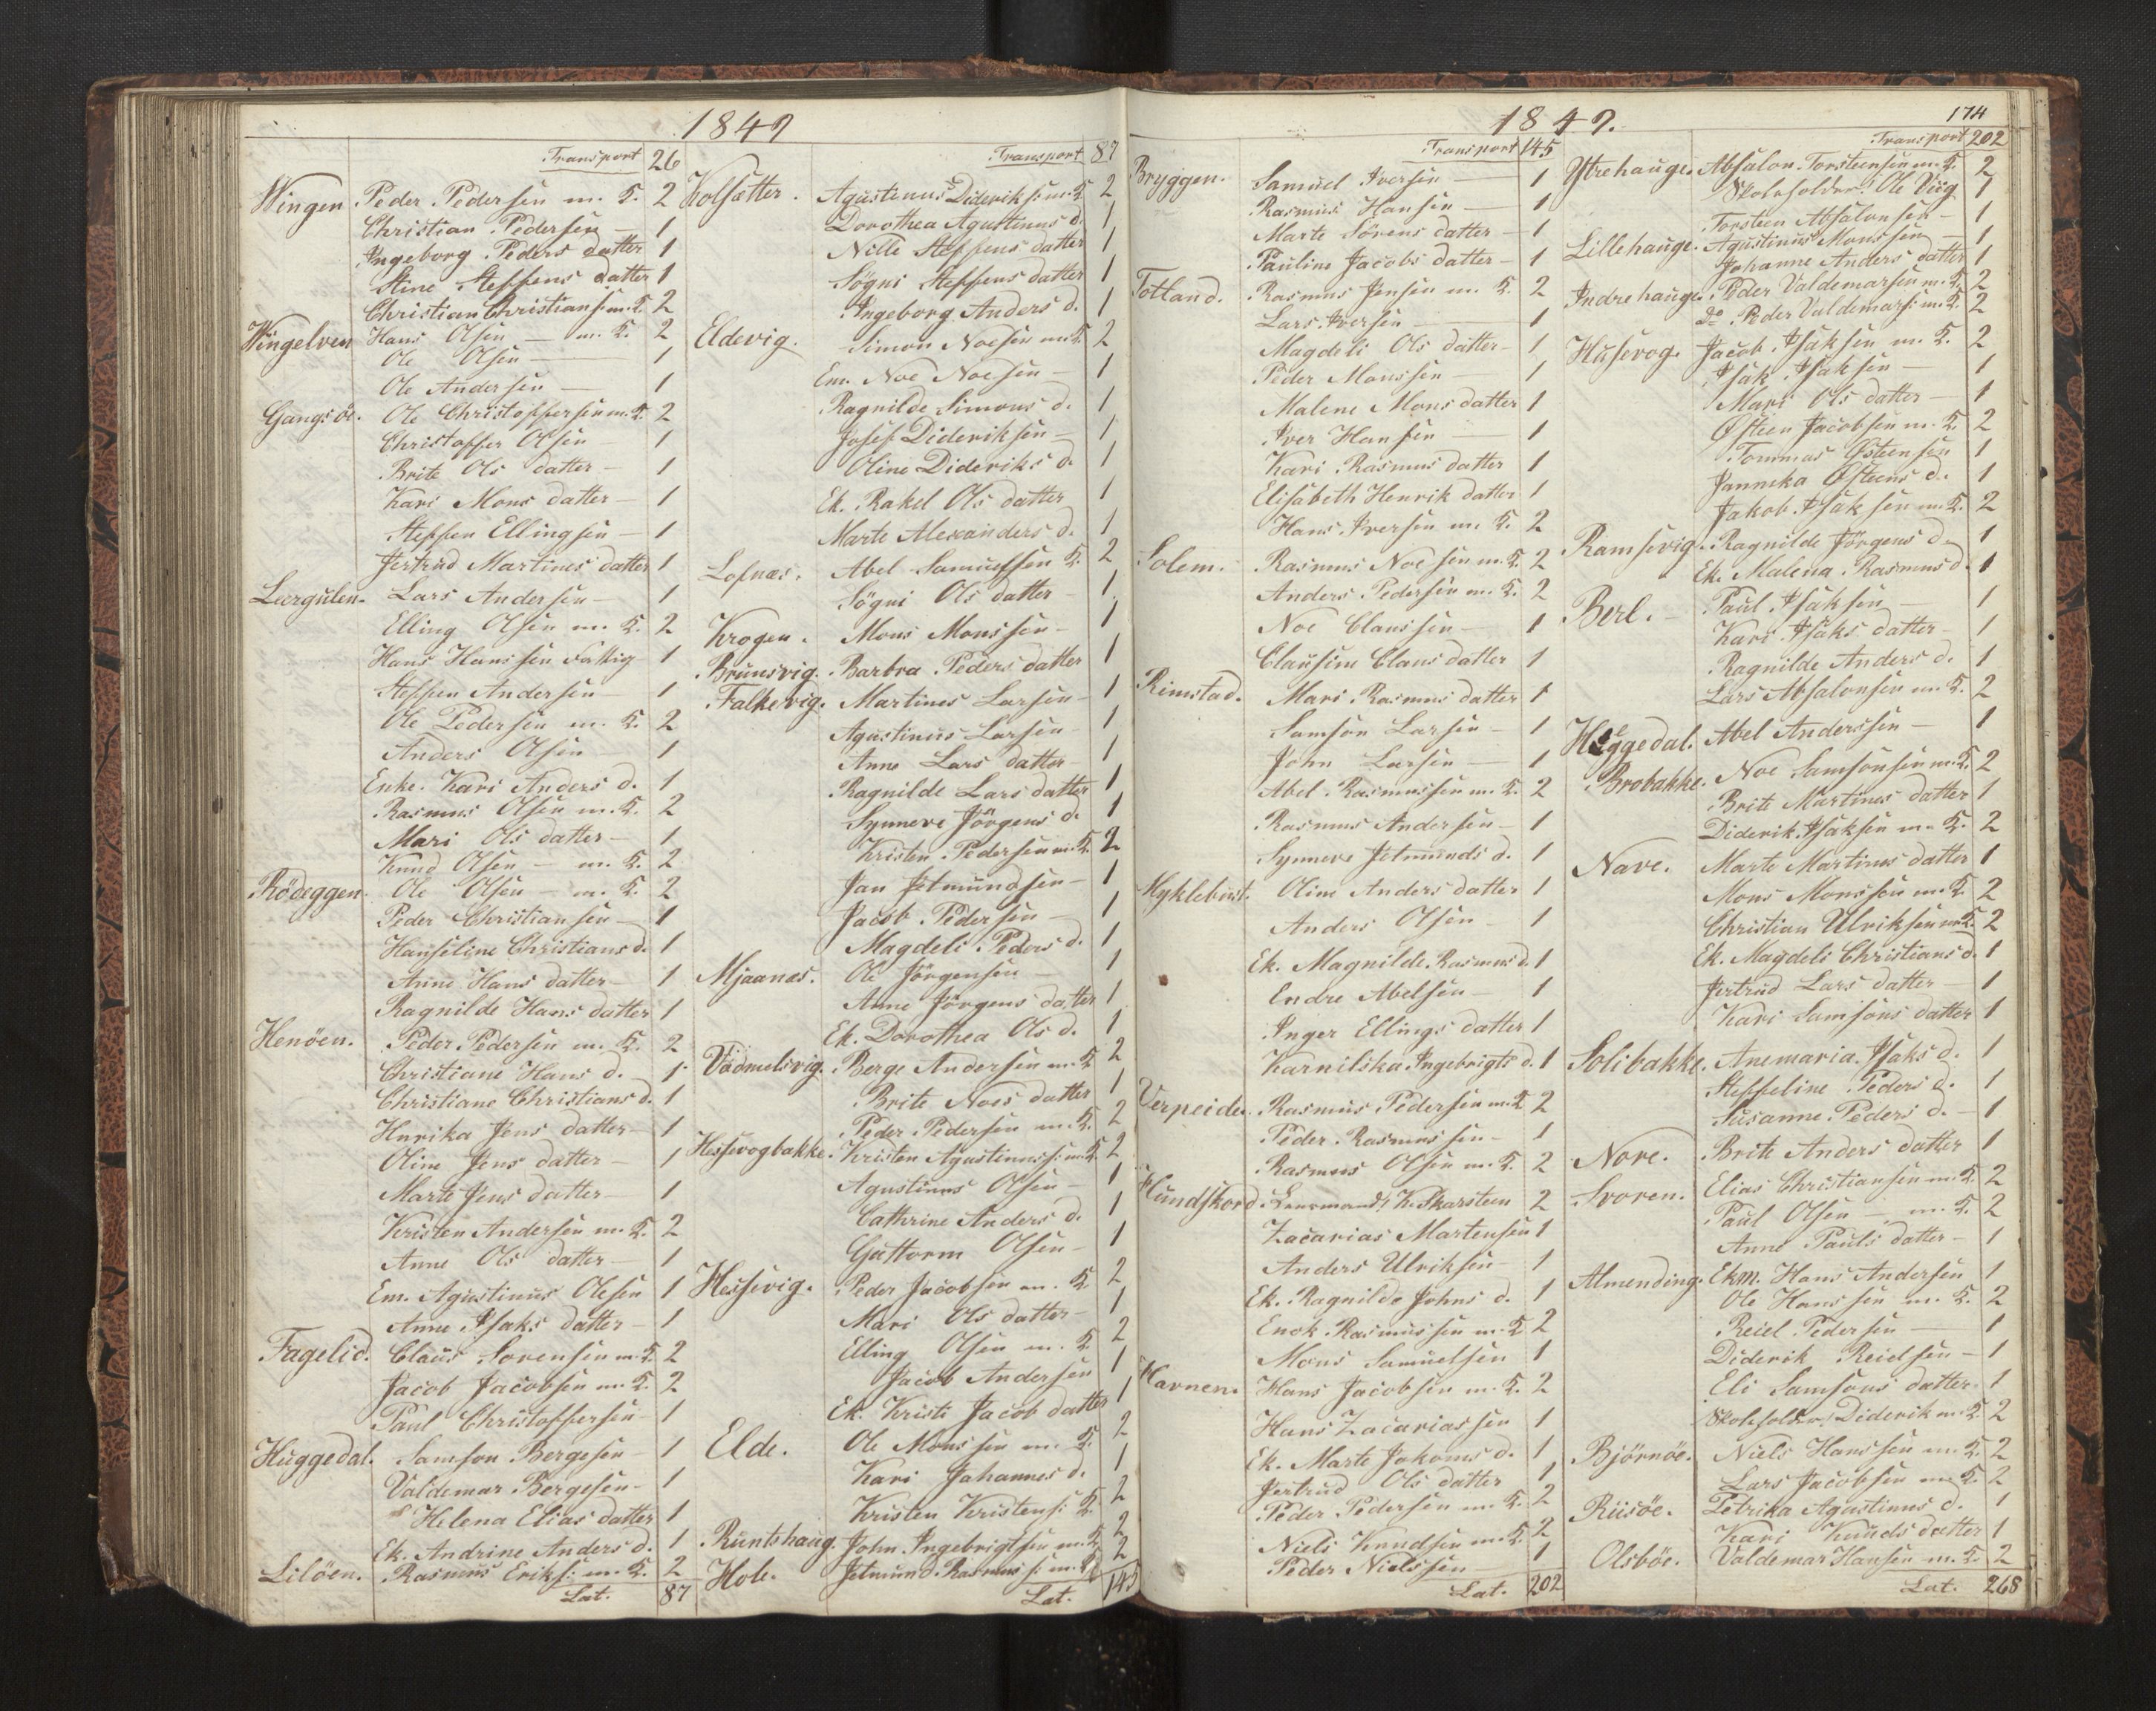 1847
Transport 26
Wingen Peder Pedersen m. K. 2
Christian Pedersen — 1
Ingeborg Peders datter 1
Stine Steffens datter 1
Christian Christians: m. K. 2
Wingelven Hans Olsen — m. K. 2
Ole Olsen — 1
Ole Andersen — 1
Gangsöe. Ole Christoffersen m. K. 2
Christoffer Olsen — 1
Brite Ols datter — 1
Kari Mons datter — 1
Steffen Ellingsen — 1
Jertrud Martines datter 1
Leergulen. Lars Andersen — 1
Elling Olsen m. K. 2
Hans Hanssen fattig 1
Steffen Andersen — 1
Ole Pedersen m. K. 2
Anders Olsen — 1
Enke. Kari Anders d. 1
Rasmus Olsen m. K. 2
Mari Ols datter — 1
Knud Olsen — m. K. 2
Rödeggen Ole Olsen — m. K. 2
Peder Christiansen — 1
Hanseline Christians d. 1
Anne Hans datter — 1
Ragnilde Hans datter 1
Henöen. Peder Pedersen m. K. 2
Christiane Hans d. — 1
Christiane Christians d. 1
Henrika Jens datter — 1
Oline Jens datter — 1
Marte Jens datter — 1
Kristen Andersen m. K. 2
Anne Ols datter — 1
Em. Agustinus Olesen 1
Anne Isaks datter — 1
Fagelid. Claus Sorensen m. K. 2
Jacob Jacobsen m. K. 2
Paul Christoffersen — 1
Huggedal. Samson Bergesen 1
Valdemar Bergesen — 1
Helena Elias datter 1
Ek. Andrine Anders d. 1
Lilöen. Rasmus Eriks: m. K. 2
Lat. 87
Transport 87
Kolsætter. Agustinus Dideriks: m. K. 2
Dorothea Agustinus d. 1
Nille Steffens datter 1
Sögni Steffens datter 1
Ingeborg Anders d. 1
Eldevig. Simon Noesen m. K. 2
Em. Noe Noesen — 1
Ragnilde Simons d. 1
Josef Dideriksen — 1
Oline Dideriks d. 1
Ek. Rakel Ols datter 1
Marte Alexanders d. 1
Lofnæs. Abel Samuelsen K. 2
Sögni Ols datter — 1
Krogen. Mons Monssen — 1
Brunsvig. Barbra Peders datter 1
Falkevig. Martinus Larsen — 1
Agustinus Larsen — 1
Anne Lars datter — 1
Ragnilde Lars datter 1
Synneve Jörgens d. 1
Kristen Pedersen m. K. 2
Jan Jetmundsen — 1
Jacob Pedersen — 1
Magdeli Peders d. 1
Mjaanæs. Ole Jörgensen — 1
Anne Jörgens datter 1
Ek. Dorothea Ols d. 1
Vadmelsvig. Berge Andersen m. K. 2
Brite Noes datter 1
Peder Pedersen m. K. 2
Hessevogbakke. Kristen Agustinuss: m. K. 2
Agustinus Olsen — 1
Cathrine Anders d. 1
Guttorm Olsen — 1
Hessevig. Peder Jacobsen m. K. 2
Mari Ols datter — 1
Elling Olsen m. K. 2
Jacob Andersen 1
Ek. Kristi Jacob datter 1
Elde. Ole Monssen m. K. 2
Kari Johannes d. 1
Kristen Kristens: K. 2
Runtshaug. John Ingebrigtsen m. K. 2
Hole. Jetmund Rasmuss: m. K. 2
Lat. 145
1847.
Transport 145
Bryggen. Samuel Iversen — 1
Rasmus Hansen — 1
Marte Sörens datter — 1
Pauline Jacobs datter — 1
Totland. Rasmus Jensen m. K. 2
Lars Iversen — 1
Magdeli Ols datter — 1
Peder Monssen — 1
Malene Mons datter 1
Iver Hansen — 1
Kari Rasmus datter 1
Elisabeth Henrik datter 1
Hans Iversen m. K. 2
Solem. Rasmus Noesen m. K. 2
Anders Pedersen m. K. 2
Noe Claussen — 1
Clausine Claus datter 1
Rimstad. Mari Rasmus datter 1
Samson Larsen — 1
John Larsen — 1
Abel Rasmussen m. K. 2
Rasmus Andersen — 1
Synneve Jetmunds d. 1
Myklebust. Oline Anders datter 1
Anders Olsen — 1
Ek. Magnilde Rasmus d. 1
Endre Abelsen — 1
Inger Ellings datter 1
Karnilska Ingebrigts d. 1
Verpeide. Rasmus Pedersen m. K 2
Peder Rasmussen — 1
Rasmus Olsen m. K. 2
Hundskord. Lensmand K. Skarsteen 2
Zacarias Martensen 1
Anders Ulriksen — 1
Ek. Ragnilde Johns d. 1
Enok Rasmussen m. K. 2
Mons Samuelsen 1
Havnen. Hans Jacobsen m. K. 2
Hans Zacariassen 1
Ek. Marte Jakoms d. 1
Jertrud Ols datter 1
Peder Pedersen m. K. 2
Niels Knudsen m. K. 2
Peder Nielssen 1
Lat. 202
174
Transport 202
Ytrehauge. Absalon Torsteensen m. K. 2
Skoleholder: Ole Viig 1
Torsteen Absalonsen — 1
Lillehauge. Agustinus Monssen — 1
Johanne Anders datter 1
Indrehauge. Peder Valdemarsen m. K. 2
Do. Peder Valdemars: m. K. 2
Husevog. Jacob Isaksen m. K. 2
Isak Isaksen — 1
Mari Ols datter — 1
Østeen Jacobsen m. K. 2
Tommas Østeensen 1
Jannika Østeens d. 1
Jakob Isaksen m. K. 2
Ramsevig. Ragnilde Jörgens d. 1
Ek. Malena Rasmus d. 1
Berl. Paul Isaksen — 1
Kari Isaks datter — 1
Ragnilde Anders d. 1
Lars Absalonsen m. K. 2
Heggedal. Abel Anderssen — 1
Brobakke. Noe Samsonsen m. K. 2
Brite Martines datter 1
Diderik Isaksen m. K. 2
Nave. Marte Martinus datter 1
Mons Monssen m. K. 2
Christian Ulriksen m. K. 2
Ek. Magdeli Christians d. 1
Jertrud Lars datter — 1
Kari Samsons datter 1
Solibakke. Anemaria Isaks d. 1
Steffeline Peders d. 1
Susanne Peders d. — 1
Nore. Brite Anders datter 1
Svoren. Elias Christiansen m. K. 2
Paul Olsen — m. K. 2
Anne Pauls datter — 1
Almending. Ekm. Hans Andersen 1
Ole Hanssen m. K. 2
Reiel Pedersen — 1
Diderik Reielsen — 1
Eli Samsons datter 1
Skoleholder: Diderik m. K. 2
Björnöe. Niels Hanssen m. K. 2
Lars Jacobsen m. K. 2
Riisöe. Petrika Agustinus d. 1
Kari Knuds datter 1
Olsböe. Valdemar Hansen m. K. 2
Lat. 268